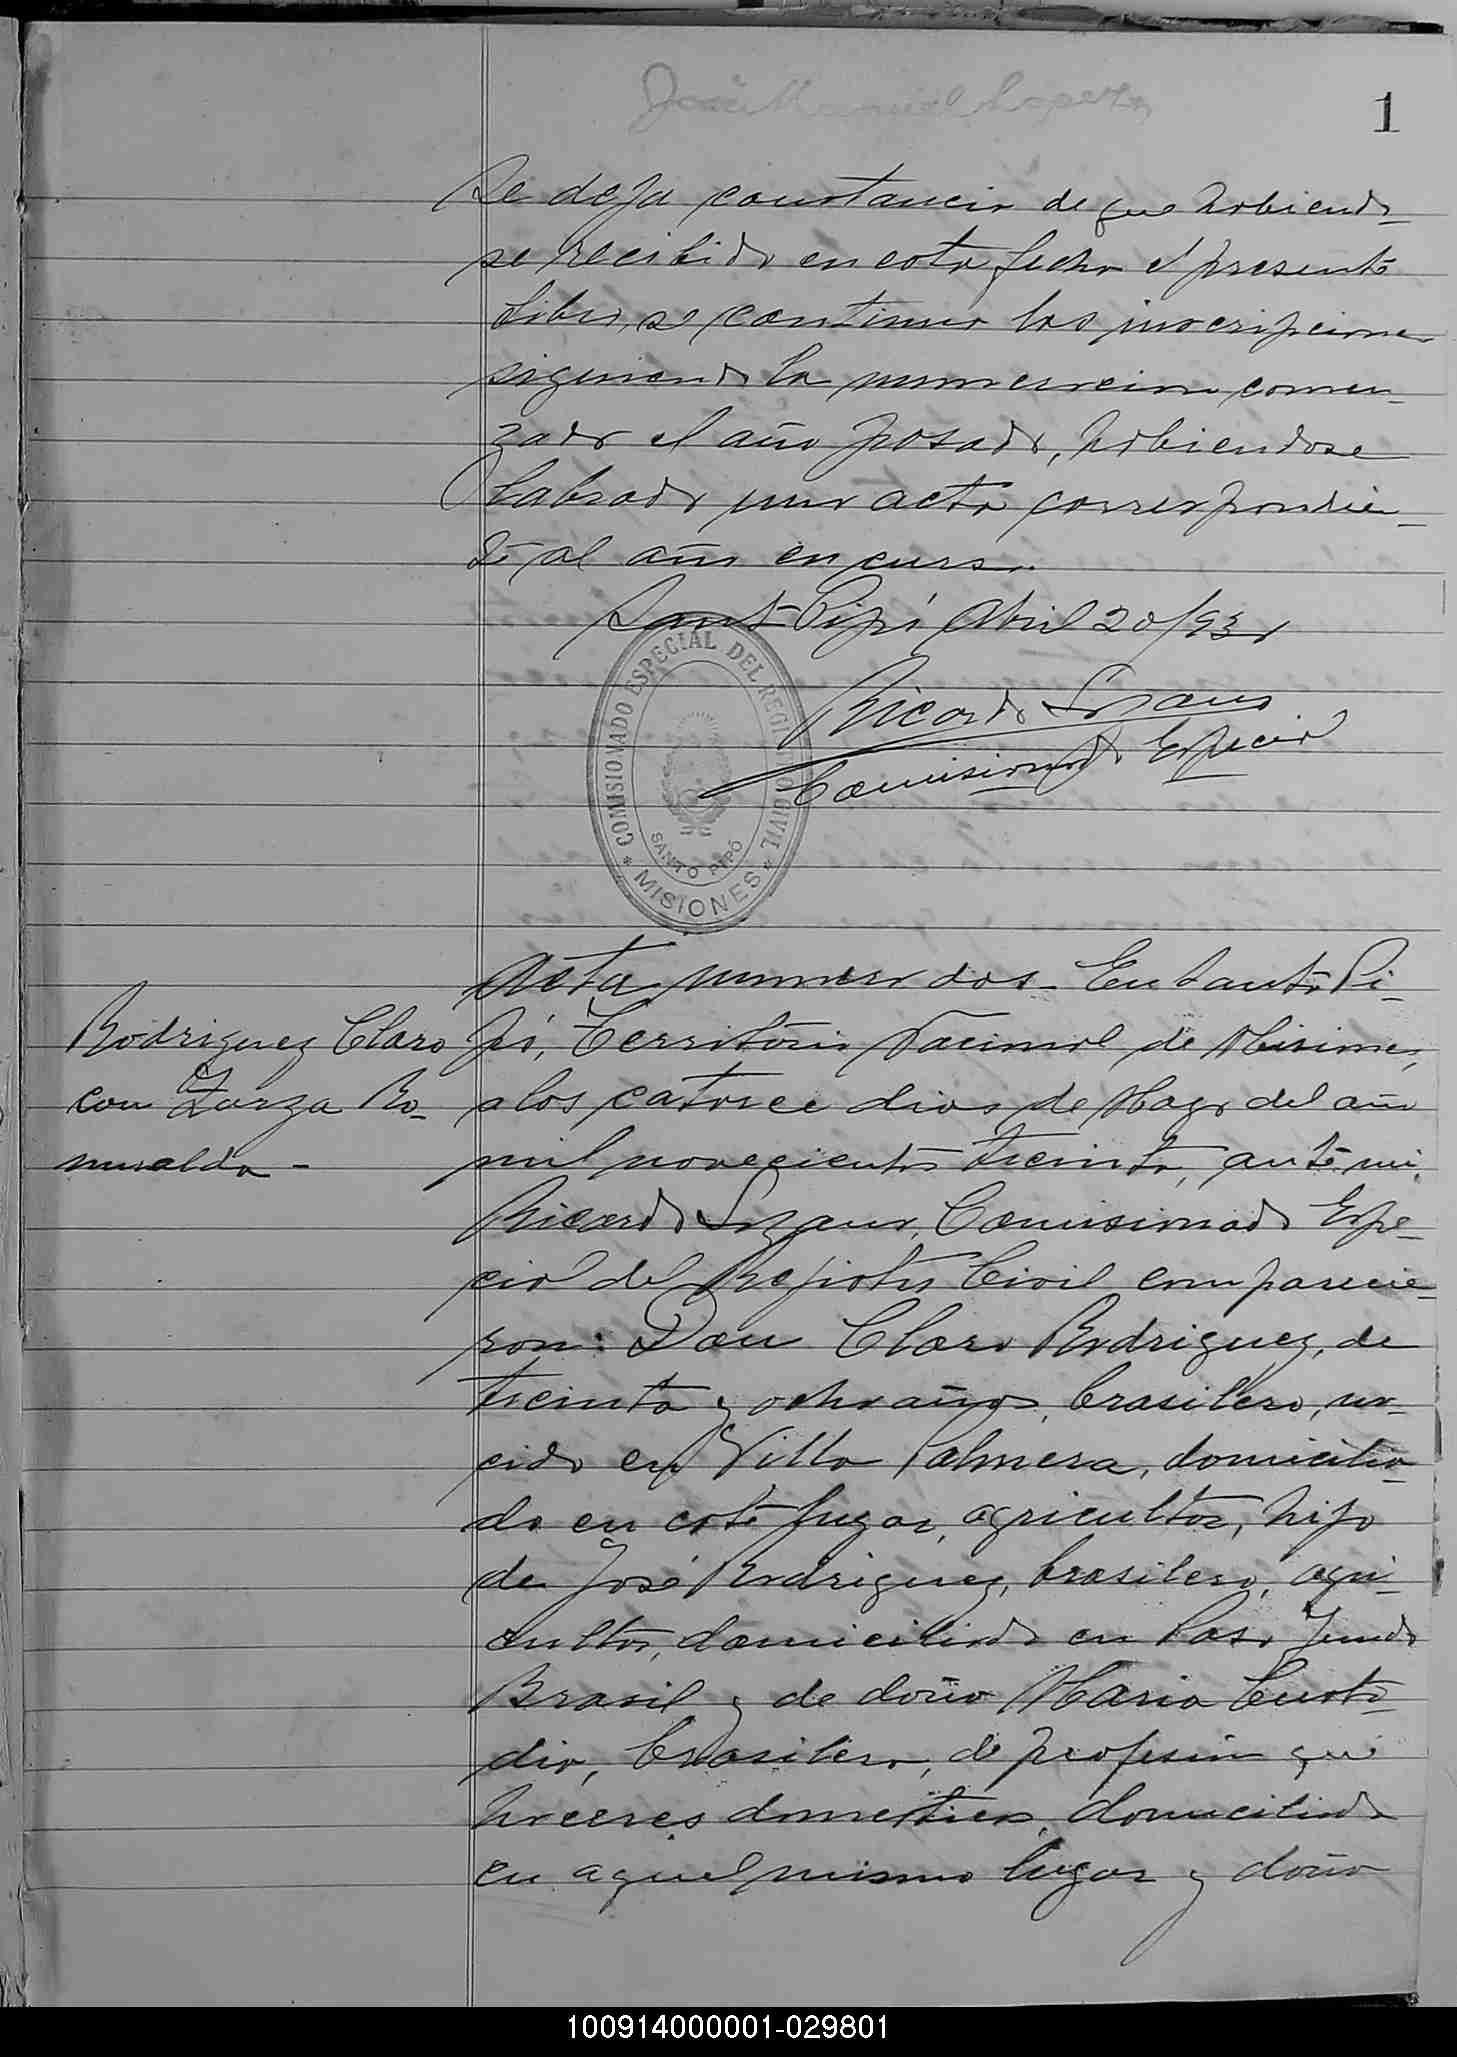 José Manuel Lopez
1
Se deja constancia de que habiendo
se recibido en esta fecha el presente
Libro, se continua las inscripciones
siguiendo la numeracion comen-
zada el año pasado, habiendose
labrado una acta correspondien-
te al año en curso.
Santo Pipó Abril 20/931
Ricardo Lozano
Comisionado Especial
COMISIONADO ESPECIAL DEL REGISTRO CIVIL
SANTO PIPÓ
* MISIONES *
Rodriguez Claro
con Zarza Ro-
mualda -
Acta numero dos - En Santo Pi-
pó, Territorio Nacional de Misiones,
a los catorce dias de Mayo del año
mil novecientos treinta, ante mi,
Ricardo Lozano, Comisionado Espe-
cial del Registro Civil comparecie-
ron: Don Claro Rodriguez, de
treinta y ocho años, brasilero, na-
cido en Villa Palmera, domicilia-
do en este lugar, agricultor, hijo
de José Rodriguez, brasilero, agri-
cultor, domiciliado en Paso Fundo
Brasil y de doña Maria Custo-
dia, brasilera, de profesion que
haceres domesticos, domiciliada
en aquel mismo lugar y doña
100914000001-029801